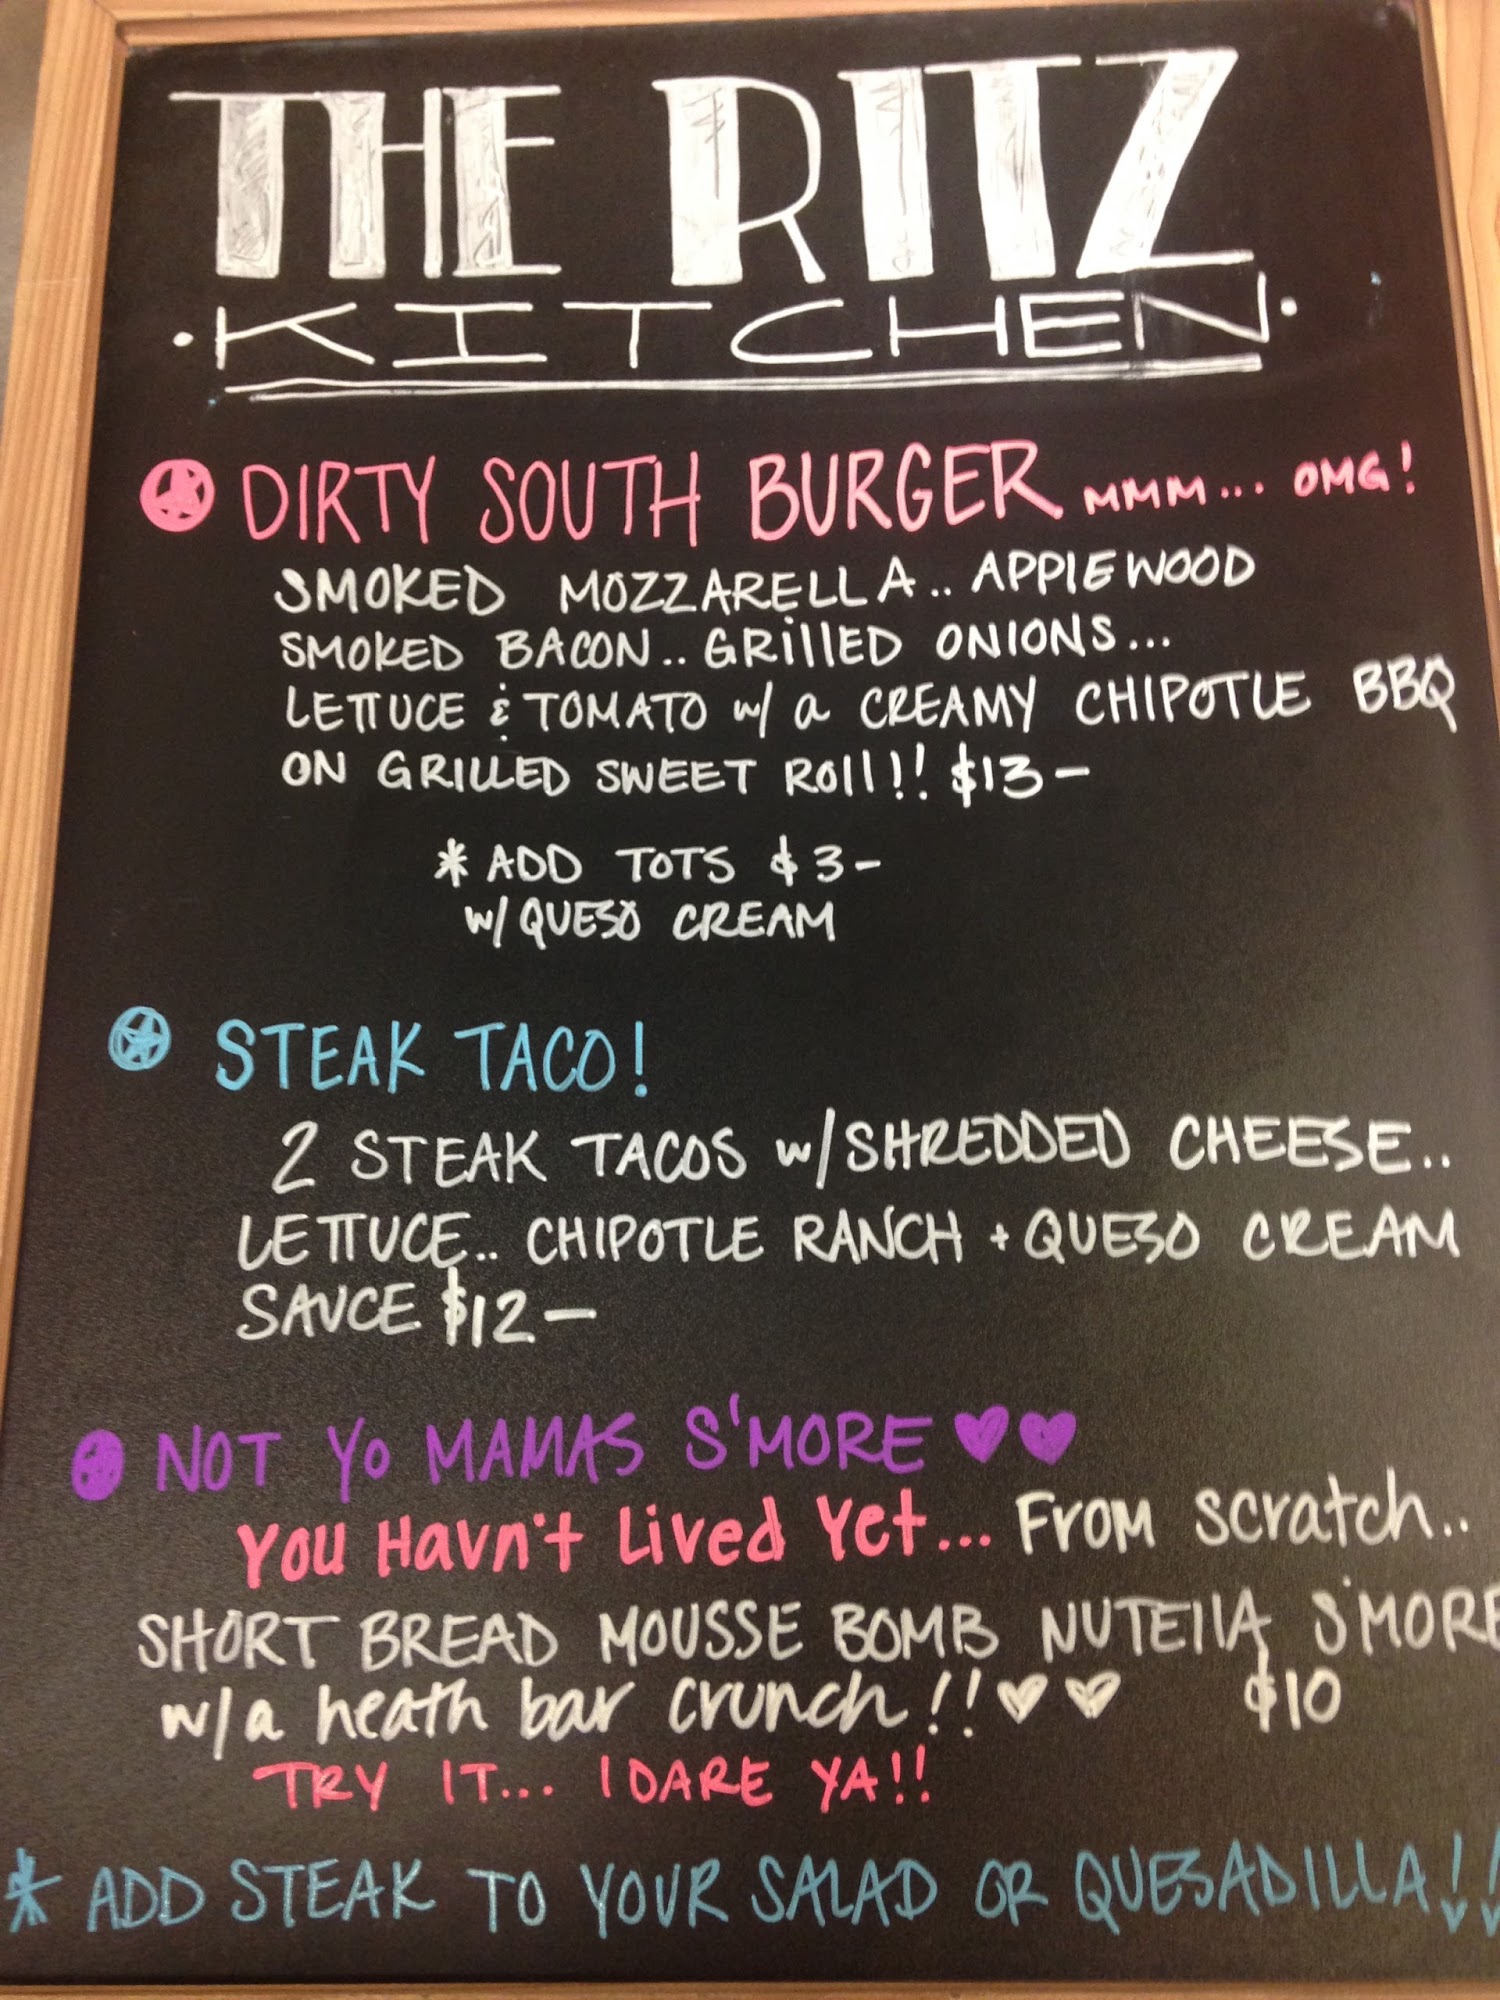 THE RITZ
· KITCHEN ·
DIRTY SOUTH BURGER MMM... OMG!
SMOKED MOZZARELLA.. APPLEWOOD
SMOKED BACON.. GRILLED ONIONS...
LETTUCE & TOMATO w/ a CREAMY CHIPOTLE BBQ
ON GRILLED SWEET ROLL!! $13-
* ADD TOTS $3-
w/ QUESO CREAM
STEAK TACO!
2 STEAK TACOS w/ SHREDDED CHEESE..
LETTUCE.. CHIPOTLE RANCH + QUESO CREAM
SAUCE $12-
NOT YO MAMAS S'MORE ♥♥
You Havn't Lived Yet... From scratch..
SHORT BREAD MOUSSE BOMB NUTELLA S'MORE
w/a heath bar crunch!! ♥♥ $10
TRY IT... I DARE YA!!
* ADD STEAK TO YOUR SALAD OR QUESADILLA!!